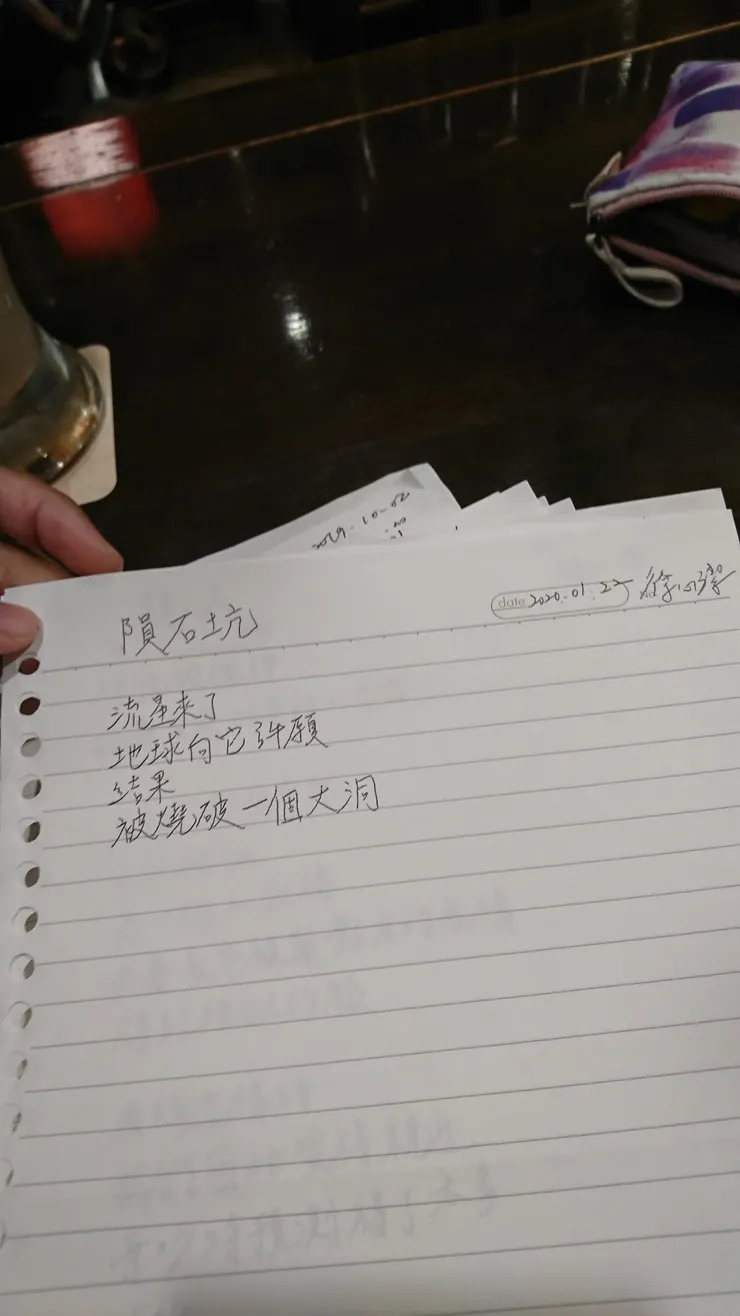 2019-10-02
隕石坑
date 2020.01.22 徐
流星來了
地球向它許願
結果
被燒破一個大洞